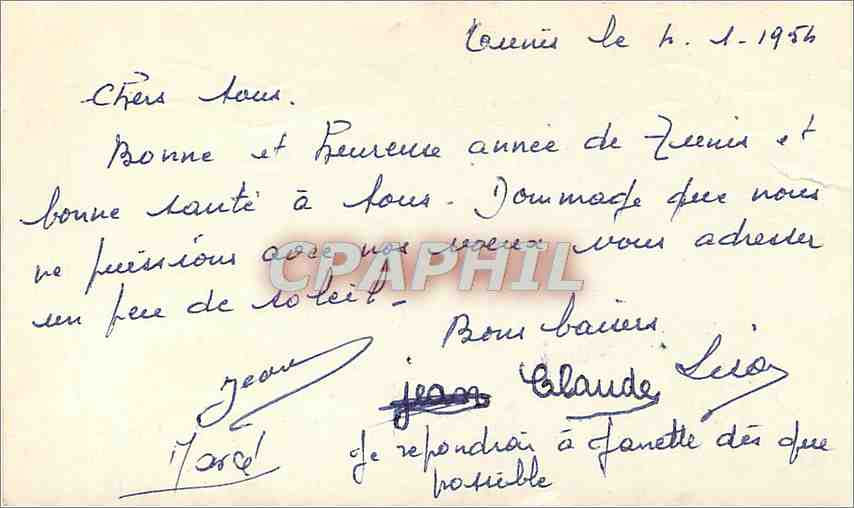 Tunis le 4.1.1954
Chers tous.
Bonne et heureuse année de Tunis et
bonne santé à tous. Dommage que nous
ne puissions avec nos voeux vous adresser
un peu de soleil.
CPAPHIL
Bons baisers
Jean
jean Claude Lisa
Marcel
Je repondrai à Janette dès que
possible